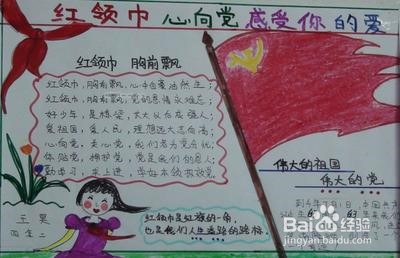 红领巾 心向党 感受你的爱
红领巾 胸前飘
红领巾,胸前飘,心中自豪油然生;
红领巾,胸前飘,党的恩情永难忘;
好少年,是栋梁,
爱祖国,爱人民,理想远大志向高;
心向党,爱心党,我们
体贴党,拥护党,党是我们的恩人;
勤学习,求上进,
王昊
四年二
红领巾是红旗的一角,
也是我们人生道路的路标。
伟大的祖国
伟大的党
到今年7月1日,中国共产
Baidu经验
jingyan.baidu.com